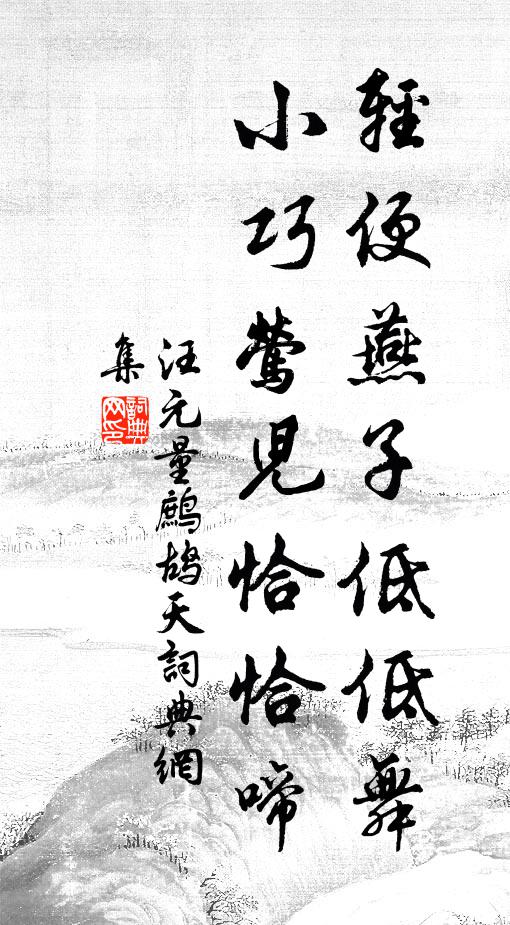 輕便燕子低低舞
小巧鶯兒恰恰啼
汪元量鷓鴣天詞典網
集
詞典網印